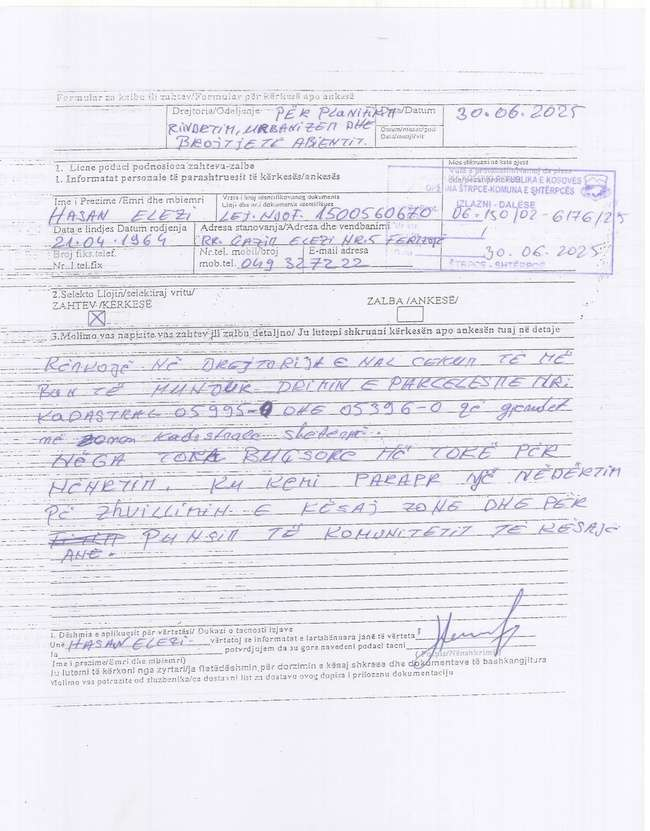 Formular za žalbe ili zahtev/Formular për kërkesë apo ankesë
Drejtoria/Odeljenje PËR PLANIFIKM
Dato/Datum 30.06.2025
RINDËRTIM, URBANIZEM DHE
BROJTJETË ABIENTIT.
Datum/mesec/god
Data/muaji/vit
1. Licne podaci podnosioca zahteva-zalbe
1. Informatat personale të parashtruesit të kërkesës/ankesës
Mos shkruani në këtë pjesë
REPUBLIKA E KOSOVËS
ŠTRPCE-KOMUNA E SHTËRPCËS
IZLAZNI - DALËSE
06-150/02-6176/25
30.06.2025
ŠTRPCE - SHTËRPCE
Ime i Prezime /Emri dhe mbiemri
HASAN ELEZI
Vrsta i broj identifikovanog dokumenta
Lloji dhe nr.i dokumentit identifikues
LEJ. NJOF. 1500560670
Data e lindjes Datum rodjenja
21.04.1964
Adresa stanovanja/Adresa dhe vendbanimi
RR. GAZIM ELEZI NR.5 FERIZAJ
Broj fiks.telef.
Nr.I tel.fix
Nr.tel. mobil/broj E-mail adresa
mob.tel. 049 327222
2.Selekto Llojin/selektiraj vrstu/
ZAHTEV /KËRKESË
ZALBA /ANKESË/
3.Molimo vas napisite vas zahtev ili zalbu detaljno/ Ju lutemi shkruani kërkesën apo ankesën tuaj në detaje
NË DREJTORIJA E NAL CEKUR TË MË
TË MUNDUR DRIMIN E PARCELES ME NRI
KADASTRAL 05995-0 DHE 05396-0 që gjendet
në zonen kadastrale
NËGA TOKA BUGSORE NË TOKË PËR
NËNRTIM. KU KEMI PARAPR NJË NËDËRTIM
PË ZHVILLIMIN E KËSAJ ZONE DHE PËR
PUNSIM TË KOMUNITETIT TE KËSAJË
ANE.
I. Dëshmia e aplikuesit për vërtetësi/ Dukazi o tacnosti izjave
Unë HASAN ELEZI vërtetoj se informatet e lartshënuara janë të vërteta
Ja potvrdjujem da su gore navedeni podaci tacni
(Ime i prezime/Emri dhe mbiemri)
Ju lutemi të kërkoni nga zyrtari/ja fletëdëshmin për dorzimin e kësaj shkrese dhe dokumentave të bashkangjitura
Molimo vas potrazite od sluzbenika/ce dostavni list za dostavu ovog dopisa i prilozenu dokumentaciju